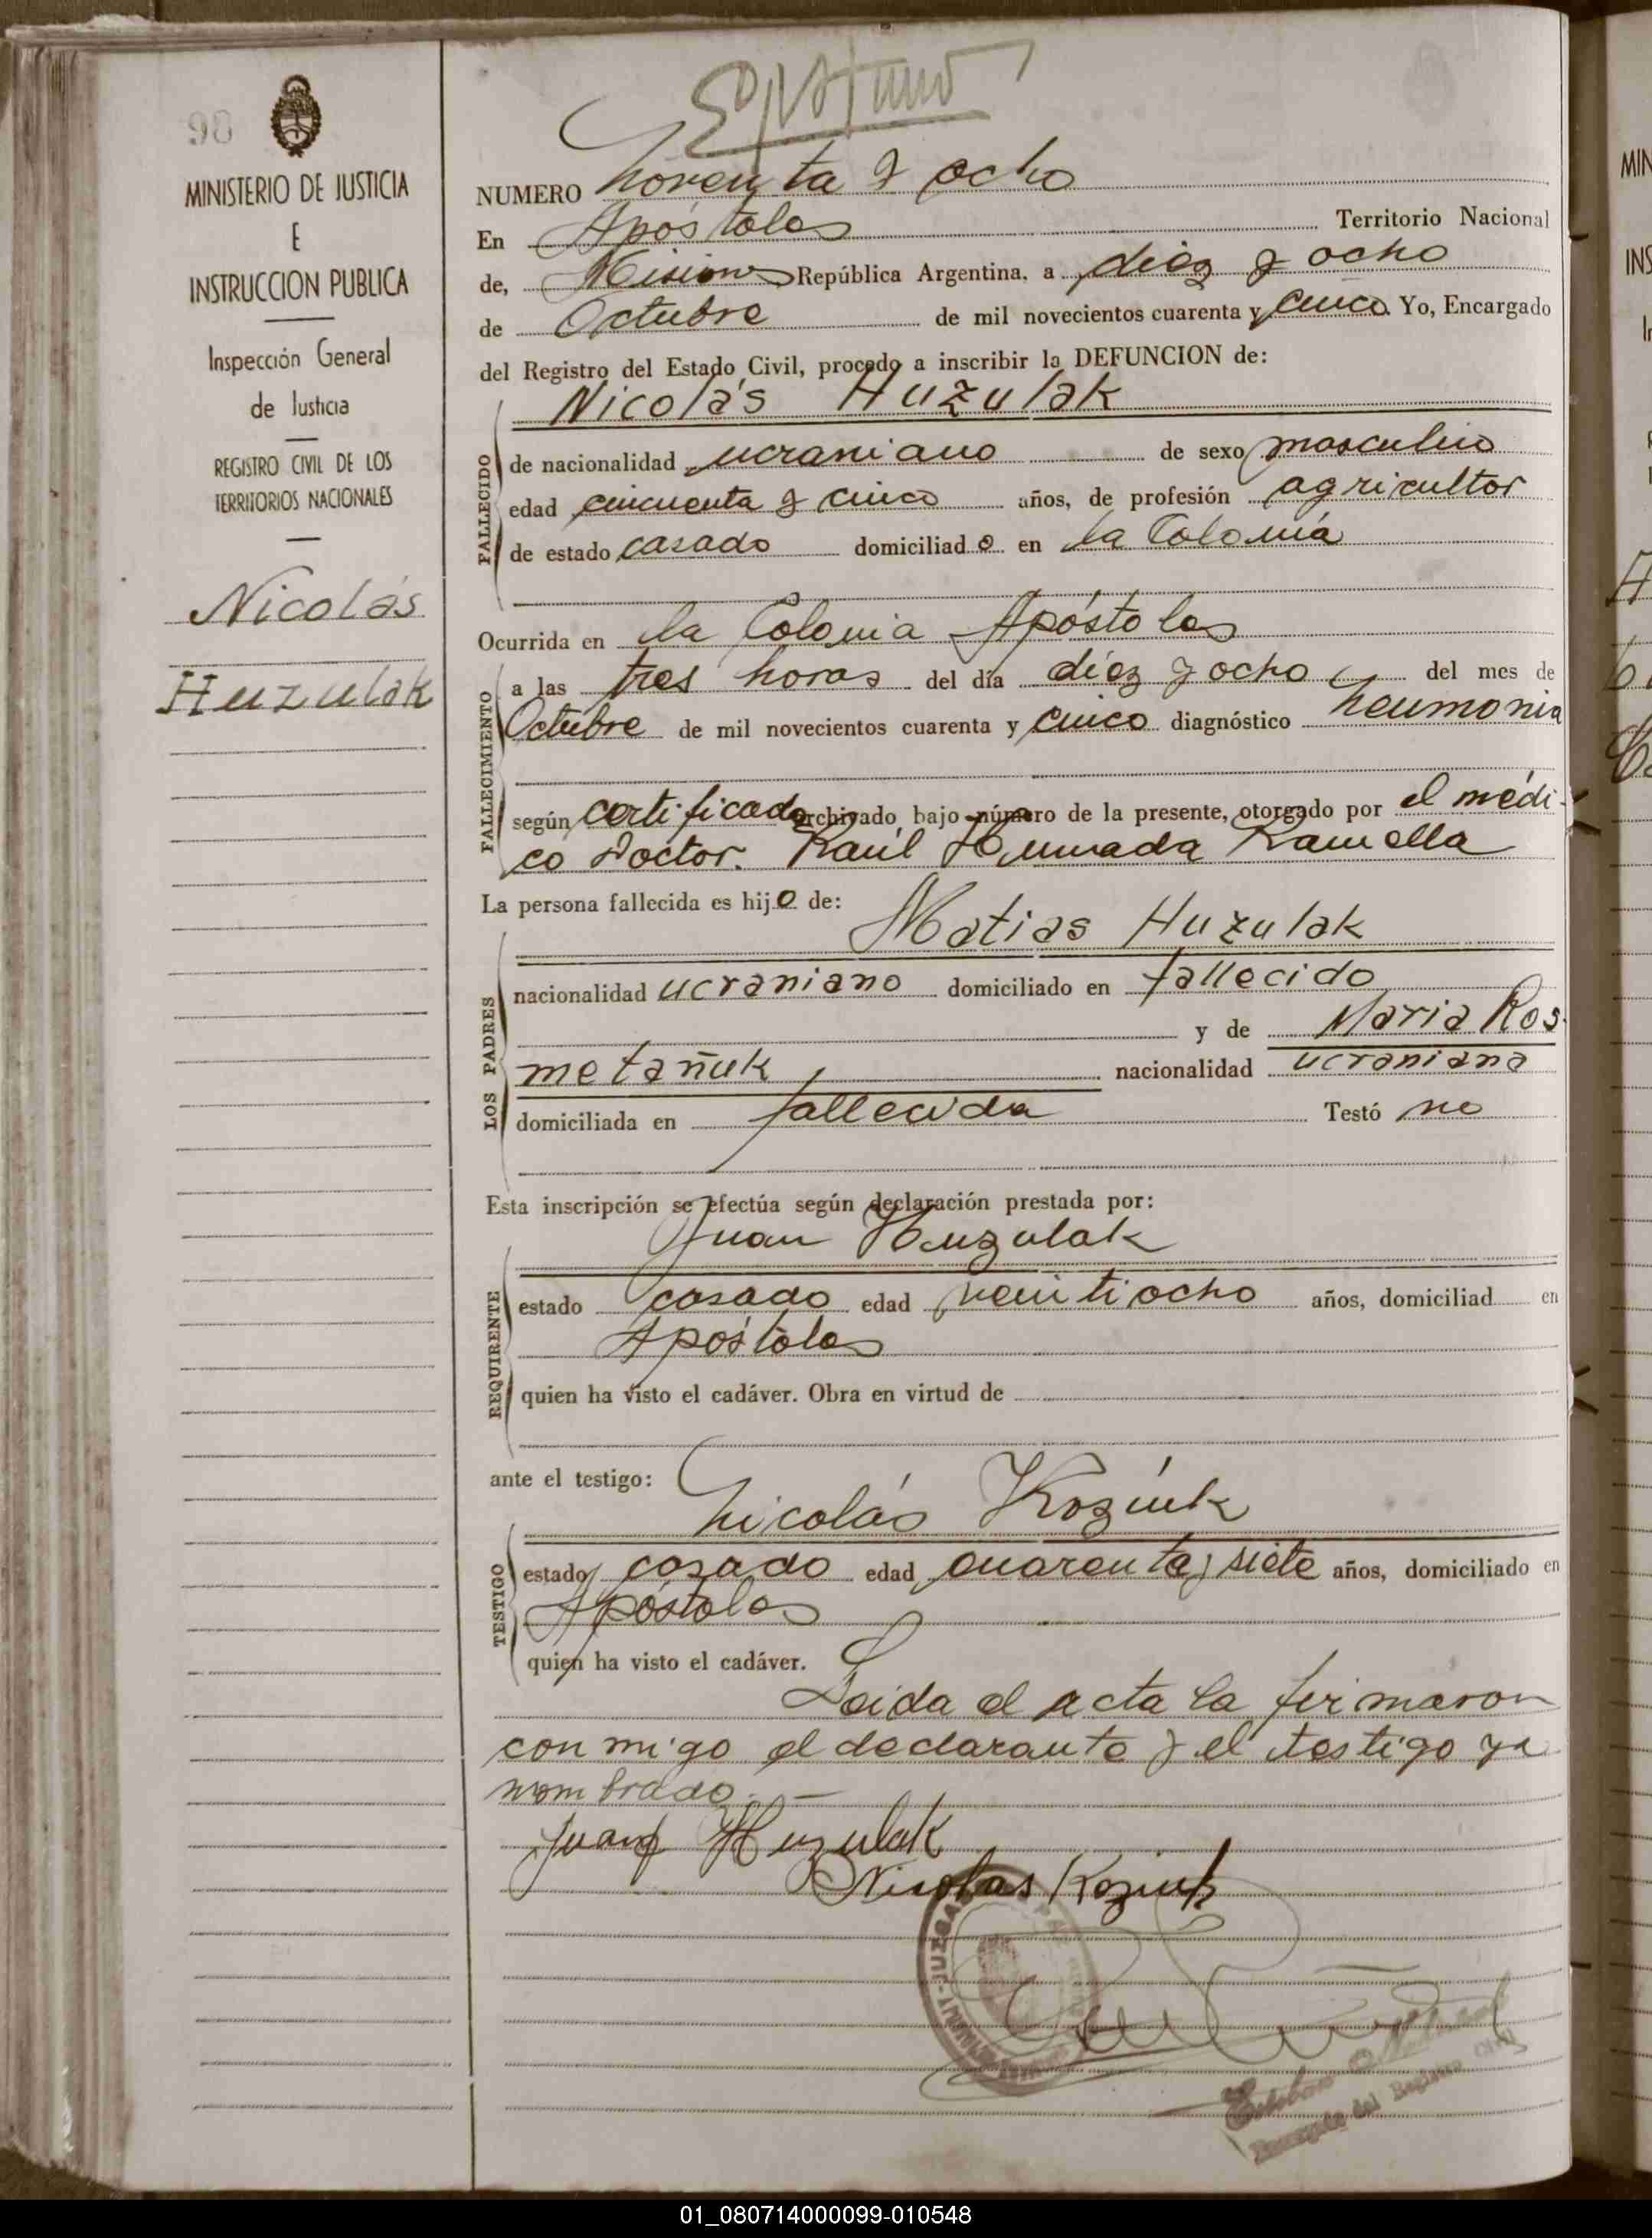 98
MINISTERIO DE JUSTICIA
E
INSTRUCCION PUBLICA
Inspección General
de Justicia
REGISTRO CIVIL DE LOS
TERRITORIOS NACIONALES
Nicolás
Huzulak
NUMERO noventa y ocho
En Apóstoles Territorio Nacional
de, Misiones República Argentina, a diez y ocho
de Octubre de mil novecientos cuarenta y cinco. Yo, Encargado
del Registro del Estado Civil, procedo a inscribir la DEFUNCION de:
Nicolás Huzulak
FALLECIDO
de nacionalidad ucraniano de sexo masculino
edad cincuenta y cinco años, de profesión agricultor
de estado casado domiciliado en la Colonia
Ocurrida en la Colonia Apóstoles
FALLECIMIENTO
a las tres horas del día diez y ocho del mes de
Octubre de mil novecientos cuarenta y cinco diagnóstico neumonia
según certificado archivado bajo número de la presente, otorgado por el médi-
co Doctor. Raúl Ramella
La persona fallecida es hijo de:
Matias Huzulak
LOS PADRES
nacionalidad ucraniano domiciliado en fallecido
y de Maria Ros-
metañuk nacionalidad ucraniana
domiciliada en fallecida Testó no
Esta inscripción se efectúa según declaración prestada por:
Juan Huzulak
REQUIRENTE
estado casado edad veintiocho años, domiciliad en
Apóstoles
quien ha visto el cadáver. Obra en virtud de
ante el testigo:
Nicolás Koziuk
TESTIGO
estado casado edad cuarenta y siete años, domiciliado en
Apóstoles
quien ha visto el cadáver.
Leida el acta la firmaron
conmigo el declarante y el testigo ya
nombrado. —
Juan Huzulak
Nicolas Koziuk
Encargado del Registro Civil
01_080714000099-010548